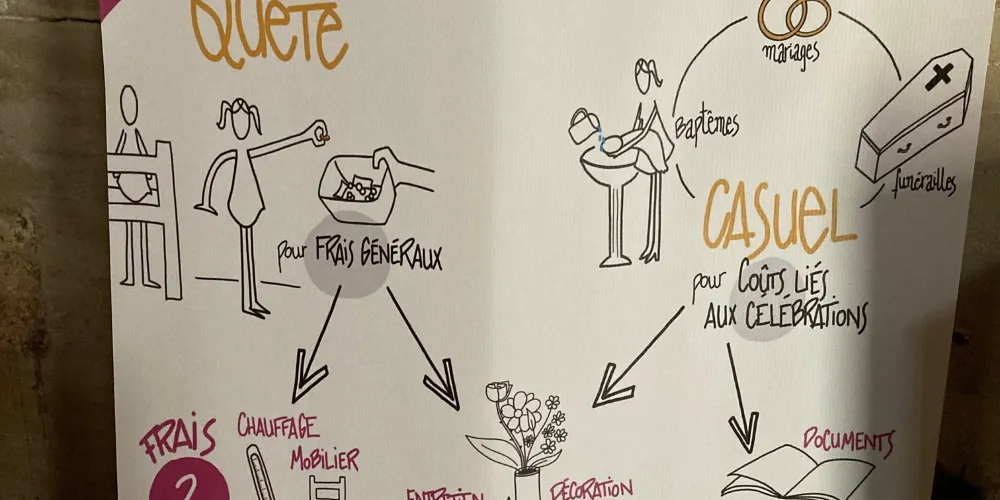 QUÊTE
mariages
Baptêmes
funérailles
CASUEL
pour FRAIS GÉNÉRAUX
pour COÛTS LIÉS
AUX CÉLÉBRATIONS
FRAIS
?
CHAUFFAGE
MOBILIER
ENTRETIEN
DÉCORATION
DOCUMENTS